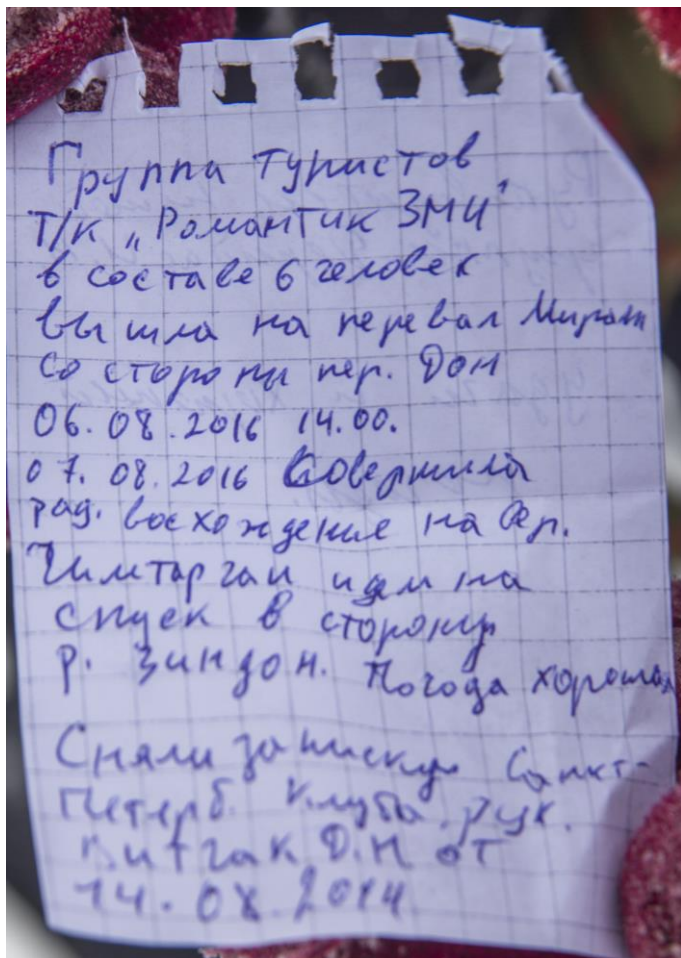 Группа туристов
Т/К „Романтик ЗМИ"
в составе 6 человек
вышла на перевал Мираж
со стороны пер. Дон
06.08.2016 14.00.
07.08.2016 Совершила
рад. восхождение на
Чимтаргаи идем на
спуск в сторону
р. Зиндон. Погода хорошая
Сняли записку Санкт-
Петерб. Клуба. рук.
Д.Н от
14.08.2014